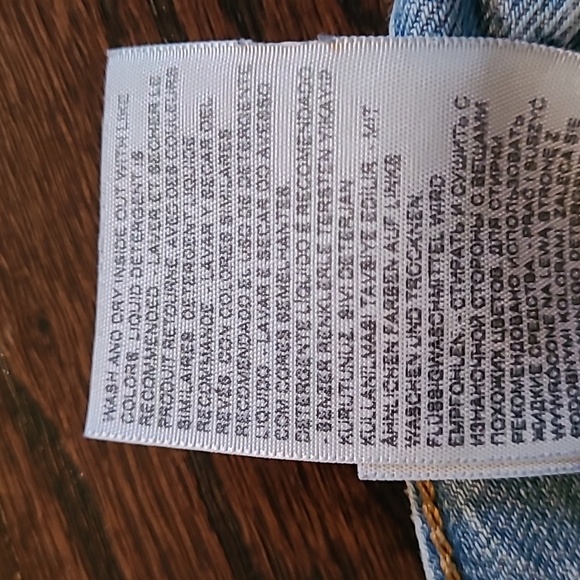 WASH AND DRY INSIDE OUT WITH LIKE
COLORS. LIQUID DETERGENT IS
RECOMMENDED. - LAVER ET SÉCHER LE
PRODUIT RETOURNÉ AVEC DES COULEURS
SIMILAIRES. DETERGENT LIQUIDE
RECOMANDÉ. - LAVAR Y SECAR DEL
REVÉS, CON COLORES SIMILARES.
RECOMENDADO EL USO DE DETERGENTE
LÍQUIDO. - LAVAR E SECAR DO AVESSO
COM CORES SEMELHANTES.
DETERGENTE LÍQUIDO É RECOMENDADO
- BENZER RENKLERLE TERSTEN YIKAYIP
KURUTUNUZ. SIVI DETERJAN
KULLANILMASI TAVSİYE EDİLİR. - MIT
ÄHNLICHEN FARBEN AUF LINKS
WASCHEN UND TROCKNEN.
FLÜSSIGWASCHMITTEL WIRD
EMPFOHLEN. - СТИРАТЬ И СУШИТЬ С
ИЗНАНОЧНОЙ СТОРОНЫ С ВЕЩАМИ
ПОХОЖИХ ЦВЕТОВ. ДЛЯ СТИРКИ
РЕКОМЕНДОВАНО ИСПОЛЬЗОВАТЬ
ЖИДКИЕ СРЕДСТВА. - PRAĆ I SUSZYĆ
WYWRÓCONE NA LEWĄ STRONĘ Z
PODOBNYMI KOLORAMI. ZALECA SIĘ